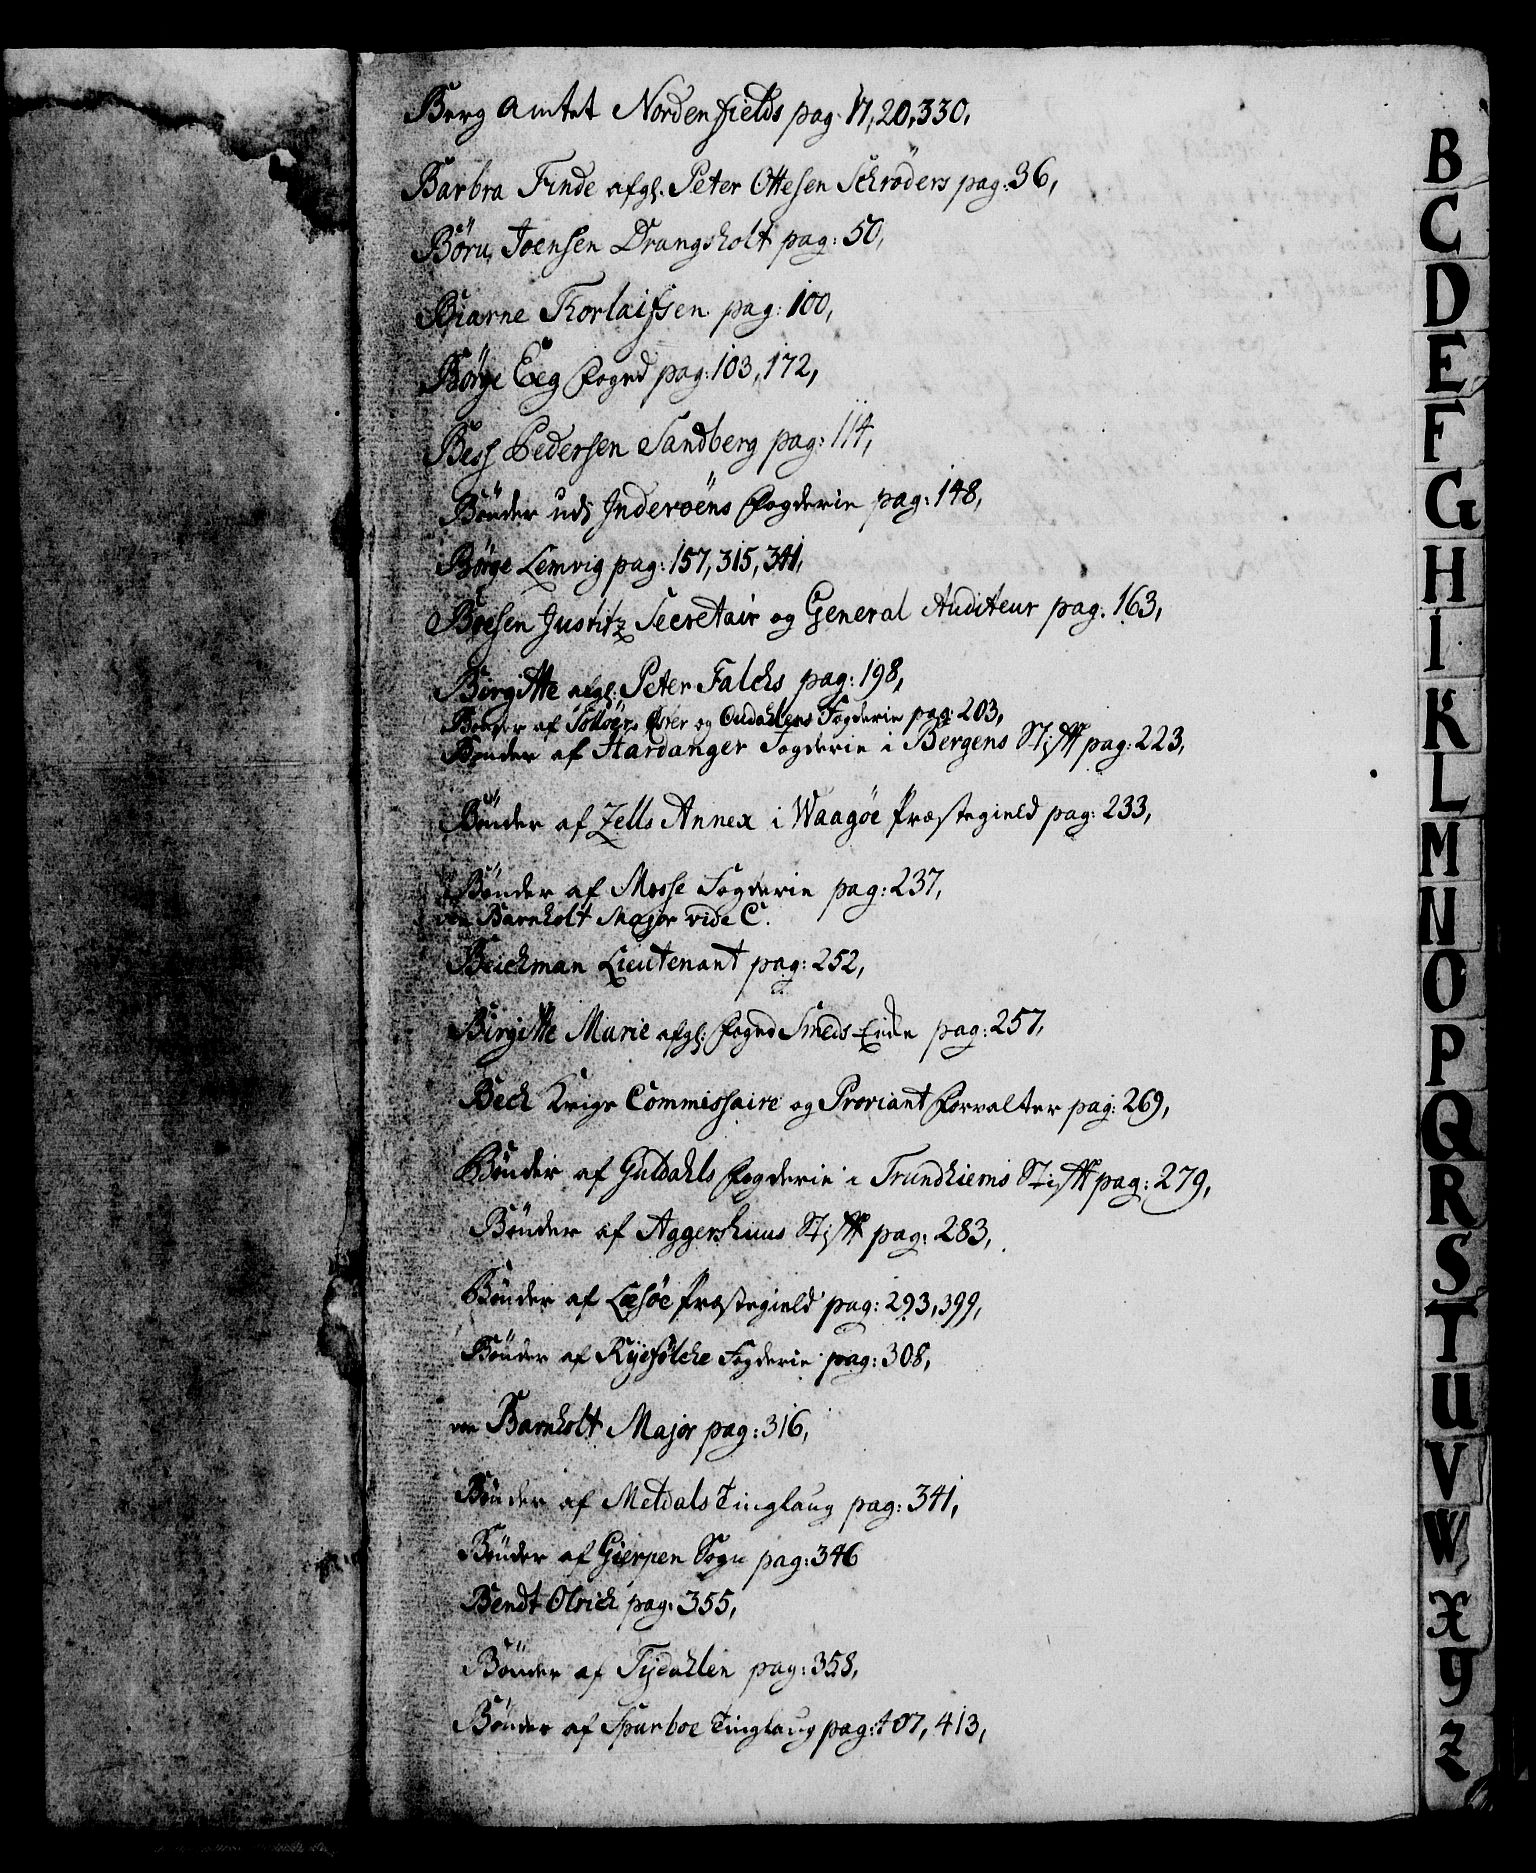 Berg Amtet Nordenfields pag: 17, 20, 330,
Barbra Finde afgl. Peter Ottesen Schrøders pag: 36,
Børu Joensen Drangsholt pag: 50,
Biarne Thorlaifsen pag: 100,
Børge Eeg Foged pag: 103, 172,
Bess Pedersen Sandberg pag: 114,
Bønder udj Inderøens Fogderie pag: 148,
Børge Lemvig pag: 157, 315, 341,
Boesen Justitz Secretair og General Auditeur pag: 163,
Birgitte afgl: Peter Falchs pag: 198,
Bønder af Øster og Oudahlens Fogderie pag: 203,
Bønder af Hardanger Fogderie i Bergens Stifft pag: 223,
Bønder af Zells Annex i Waagøe Præstegield pag: 233,
Bønder af Mosse Fogderie pag: 237,
von Barnholt Major vide C.
Beichman Lieutenant pag: 252,
Birgitte Marie afgl: Foged Smeds Enke pag: 257,
Bech Krigs Commissaire og Proviant Forvalter pag: 269,
Bønder af Guldahls Fogderie i Trundhiems Stifft pag: 279,
Bønder af Aggershuus Stifft pag: 283,
Bønder af Læsøe Præstegield pag: 293, 399,
Bønder af Ryefølche Fogderie pag: 308,
von Barnholt Major pag: 316,
Bønder af Meldals Tinglaug pag: 341,
Bønder af Gierpen Sogn pag: 346
Bendt Olrich pag: 355,
Bønder af Tydahlen pag: 358,
Bønder af Sparboe Tinglaug pag: 407, 413,
B
C
D
E
F
G
H
I
K
L
M
N
O
P
Q
R
S
T
U
V
W
X
Y
Z